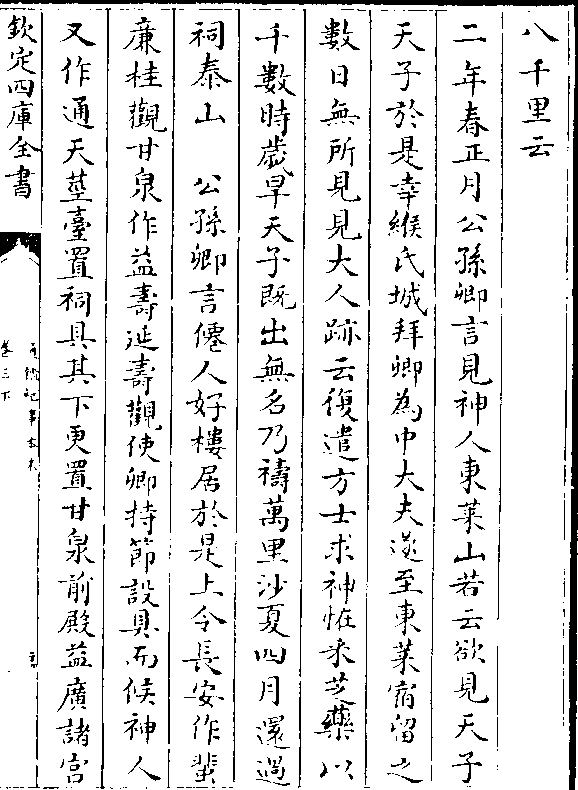 八千里云
二年春正月公孫卿言見神人東萊山若云欲見天子
天子於是幸緱氏城拜卿為中大夫遂至東萊宿留之
數日無所見見大人跡云復遣方士求神怪采芝藥以
千數時歲旱天子既出無名乃禱萬里沙夏四月還過
祠泰山　公孫卿言僊人好樓居於是上令長安作蜚
廉桂觀甘泉作益壽延壽觀使卿持節設具而候神人
又作通天莖臺置祠具其下更置甘泉前殿益廣諸宫
欽定四庫全書
卷三下